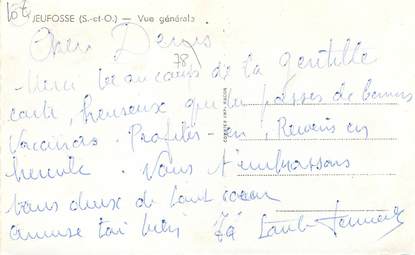 JEUFOSSE (S.-et-O.) — Vue générale
Cher Denis
78
Merci beaucoup de la gentille
carte, heureux que tu passes de bonnes
Vacances. Profites-en, Reviens en
hercule. Vous t'embrassons
tous deux de tout coeur
amuse toi bien Ta